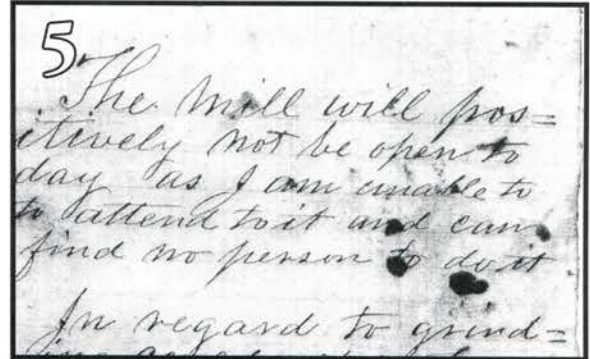 5
The Mill will pos=
itively not be open to
day as I am unable to
to attend to it and can
find no person to do it
In regard to grind=